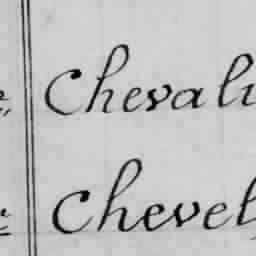 Chevali
Chevel